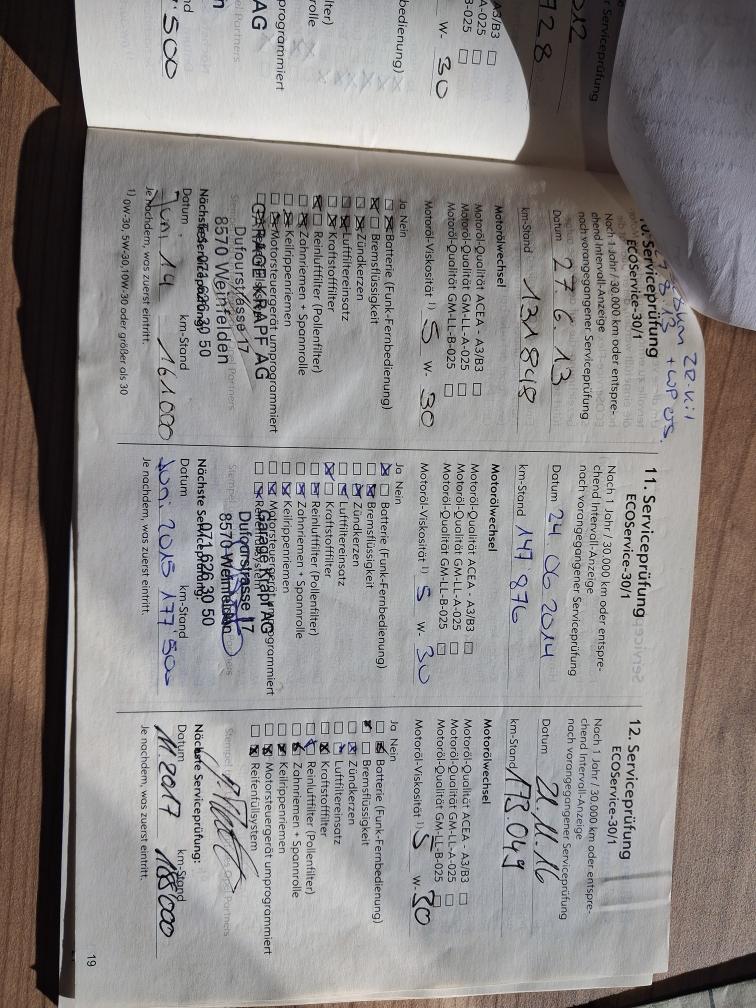 12
r Serviceprüfung
728
A3/B3
A-025
B-025
W- 30
bedienung)
lter)
rolle
programmiert
AG
el Partners
500
27.8.13 + WP ers.
10. Serviceprüfung
ECOService-30/1
Nach 1 Jahr / 30.000 km oder entspre-
chend Intervall-Anzeige
nach vorangegangener Serviceprüfung
Datum 27.6.13
km-Stand 131848
Motorölwechsel
Motoröl-Qualität ACEA - A3/B3
Motoröl-Qualität GM-LL-A-025
Motoröl-Qualität GM-LL-B-025
Motoröl-Viskosität 1) 5 W- 30
Ja Nein
Batterie (Funk-Fernbedienung)
Bremsflüssigkeit
Zündkerzen
Luftfiltereinsatz
Kraftstofffilter
Reinluftfilter (Pollenfilter)
Zahnriemen + Spannrolle
Keilrippenriemen
Motorsteuergerät umprogrammiert
GARAGE KRAPF AG
Dufourstrasse 17
8570 Weinfelden
Nächste Serviceprüfung:
Tel. 071 626 30 50
Datum km-Stand
Juni 14 161000
Je nachdem, was zuerst eintritt.
1) 0W-30, 5W-30, 10W-30 oder größer als 30
11. Serviceprüfung
ECOService-30/1
Nach 1 Jahr / 30.000 km oder entspre-
chend Intervall-Anzeige
nach vorangegangener Serviceprüfung
Datum 24 06 2014
km-Stand 147 876
Motorölwechsel
Motoröl-Qualität ACEA - A3/B3
Motoröl-Qualität GM-LL-A-025
Motoröl-Qualität GM-LL-B-025
Motoröl-Viskosität 1) 5 W- 30
Ja Nein
Batterie (Funk-Fernbedienung)
Bremsflüssigkeit
Zündkerzen
Luftfiltereinsatz
Kraftstofffilter
Reinluftfilter (Pollenfilter)
Zahnriemen + Spannrolle
Keilrippenriemen
Motorsteuergerät umprogrammiert
Reifenfüllsystem
Garage Krapf AG
Dufourstrasse 17
8570 Weinfelden
Nächste Serviceprüfung:
071 626 30 50
Datum km-Stand
Juni 2015 177'500
Je nachdem, was zuerst eintritt.
12. Serviceprüfung
ECOService-30/1
Nach 1 Jahr / 30.000 km oder entspre-
chend Intervall-Anzeige
nach vorangegangener Serviceprüfung
Datum 21.11.16
km-Stand 173.049
Motorölwechsel
Motoröl-Qualität ACEA - A3/B3
Motoröl-Qualität GM-LL-A-025
Motoröl-Qualität GM-LL-B-025
Motoröl-Viskosität 1) 5 W- 30
Ja Nein
Batterie (Funk-Fernbedienung)
Bremsflüssigkeit
Zündkerzen
Luftfiltereinsatz
Kraftstofffilter
Reinluftfilter (Pollenfilter)
Zahnriemen + Spannrolle
Keilrippenriemen
Motorsteuergerät umprogrammiert
Reifenfüllsystem
Stempel des Opel Partners
Nächste Serviceprüfung:
Datum km-Stand
11 2017 188000
Je nachdem, was zuerst eintritt.
19